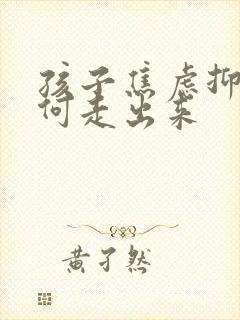 孩子焦虑抑
何走出来
黄孑然